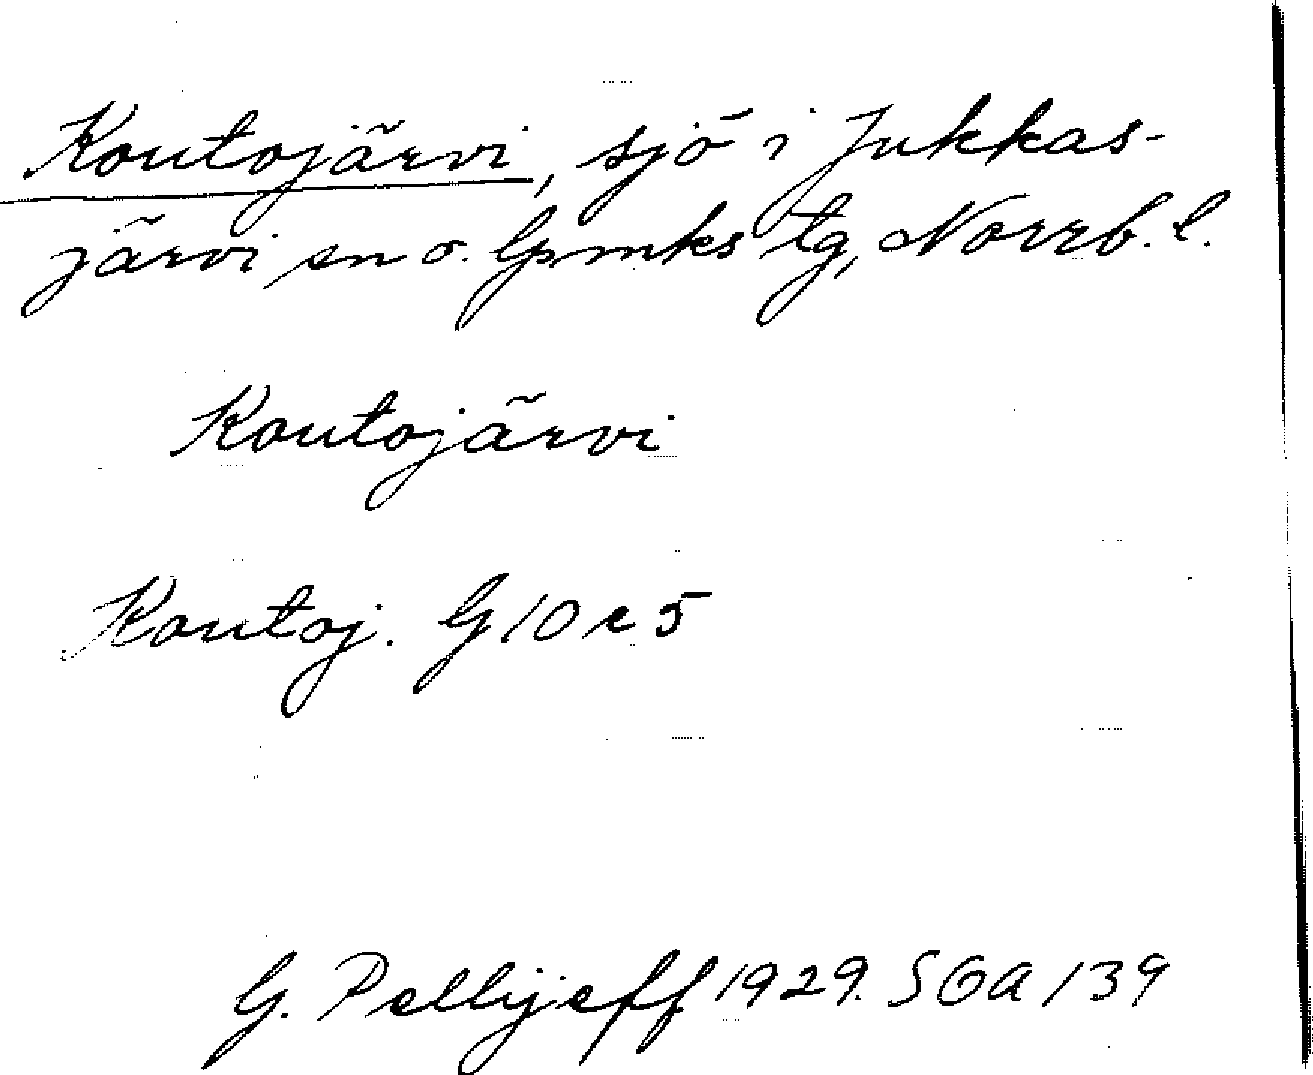 Koutojärvi, sjö i Jukkas-
järvi sn o. Gpmks tg, Norrb. l.
Koutojärvi
Koutoj. G 10 c 5
G. Pellijeff 1929. SOA 139